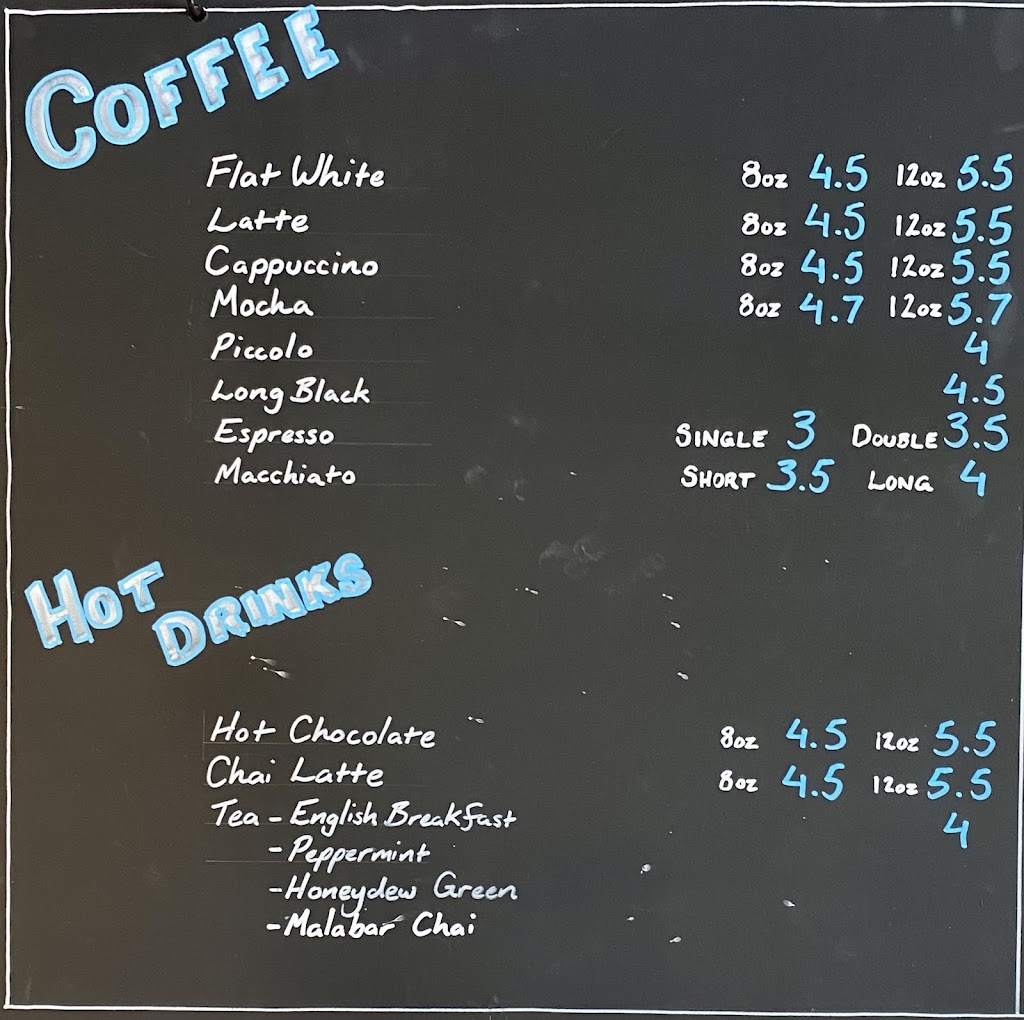 COFFEE
Flat White 8oz 4.5 12oz 5.5
Latte 8oz 4.5 12oz 5.5
Cappuccino 8oz 4.5 12oz 5.5
Mocha 8oz 4.7 12oz 5.7
Piccolo 4
Long Black 4.5
Espresso SINGLE 3 DOUBLE 3.5
Macchiato SHORT 3.5 LONG 4
HOT
DRINKS
Hot Chocolate 8oz 4.5 12oz 5.5
Chai Latte 8oz 4.5 12oz 5.5
Tea - English Breakfast 4
- Peppermint
- Honeydew Green
- Malabar Chai